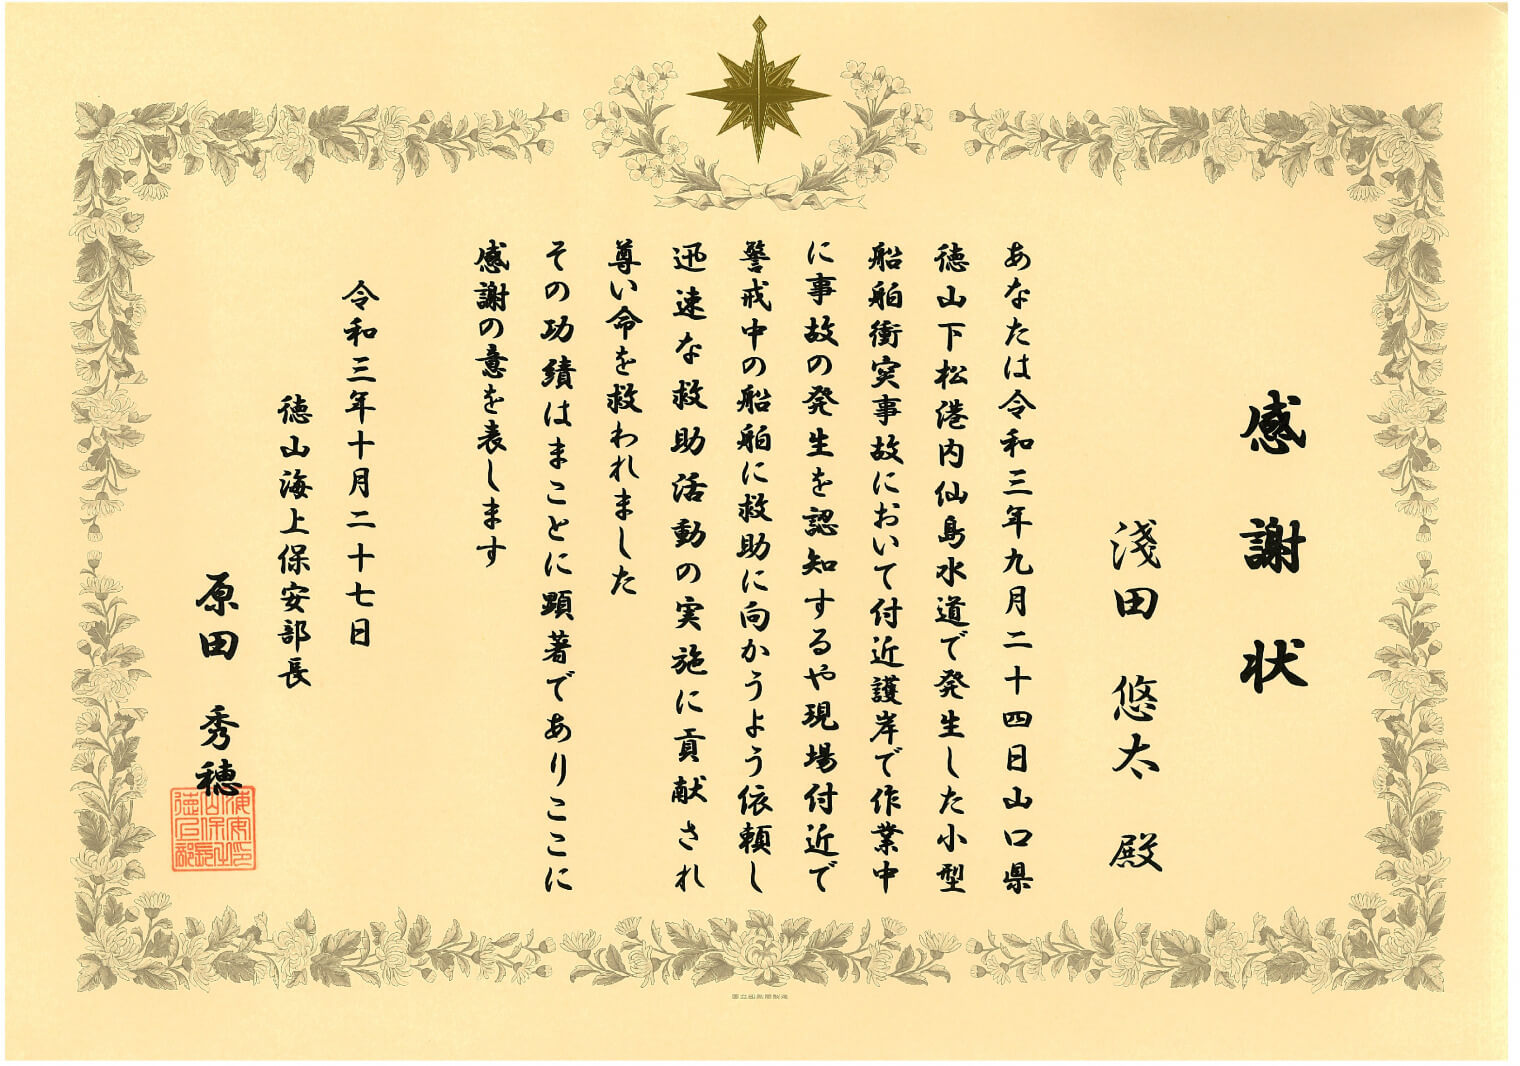 感謝状
淺田 悠太 殿
あなたは令和三年九月二十四日山口県
徳山下松港内仙島水道で発生した小型
船舶衝突事故において付近護岸で作業中
に事故の発生を認知するや現場付近で
警戒中の船舶に救助に向かうよう依頼し
迅速な救助活動の実施に貢献され
尊い命を救われました
その功績はまことに顕著でありここに
感謝の意を表します
令和三年十月二十七日
徳山海上保安部長
原田 秀穂